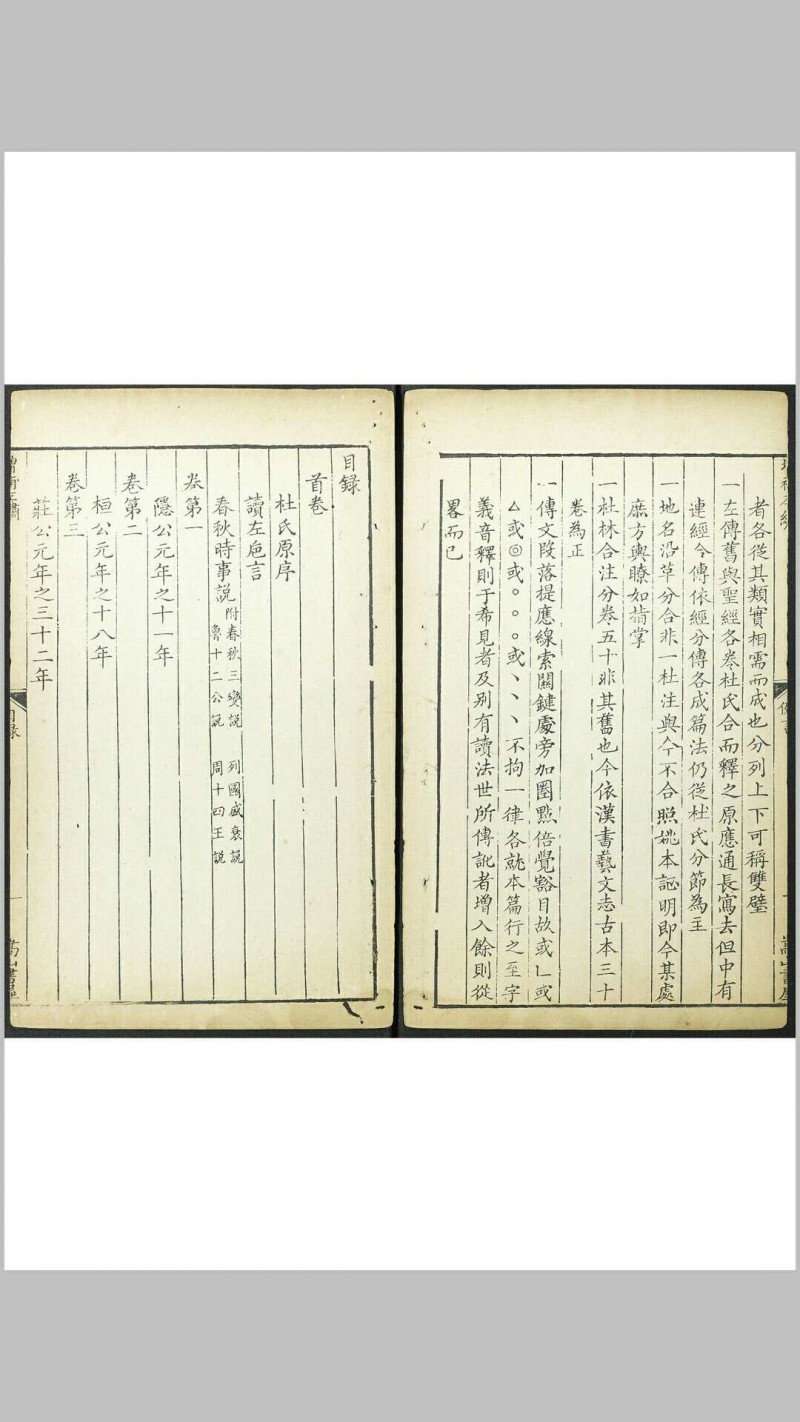 者各從其類實相需而成也分列上下可稱雙璧
一左傳舊與聖經各卷杜氏合而釋之原應通長寫去但中有
連經今傳依經分傳各成篇法仍從杜氏分節為主
一地名沿革分合非一杜注與今不合照姚本証明即今某處
庶方輿瞭如指掌
一杜林合注分卷五十非其舊也今依漢書藝文志古本三十
卷為正
一傳文段落提應線索關鍵處旁加圈點倍覺豁目故或乚或
△或◎或。。。或丶丶丶不拘一律各就本篇行之至字
義音釋則于希見者及别有讀法世所傳訛者增入餘則從
畧而已
例言
目録
首卷
杜氏原序
讀左巵言
春秋時事説 附春秋三變説 列國盛衰説
魯十二公説 周十四王説
卷第一
隱公元年之十一年
卷第二
桓公元年之十八年
卷第三
莊公元年之三十二年
目録
一